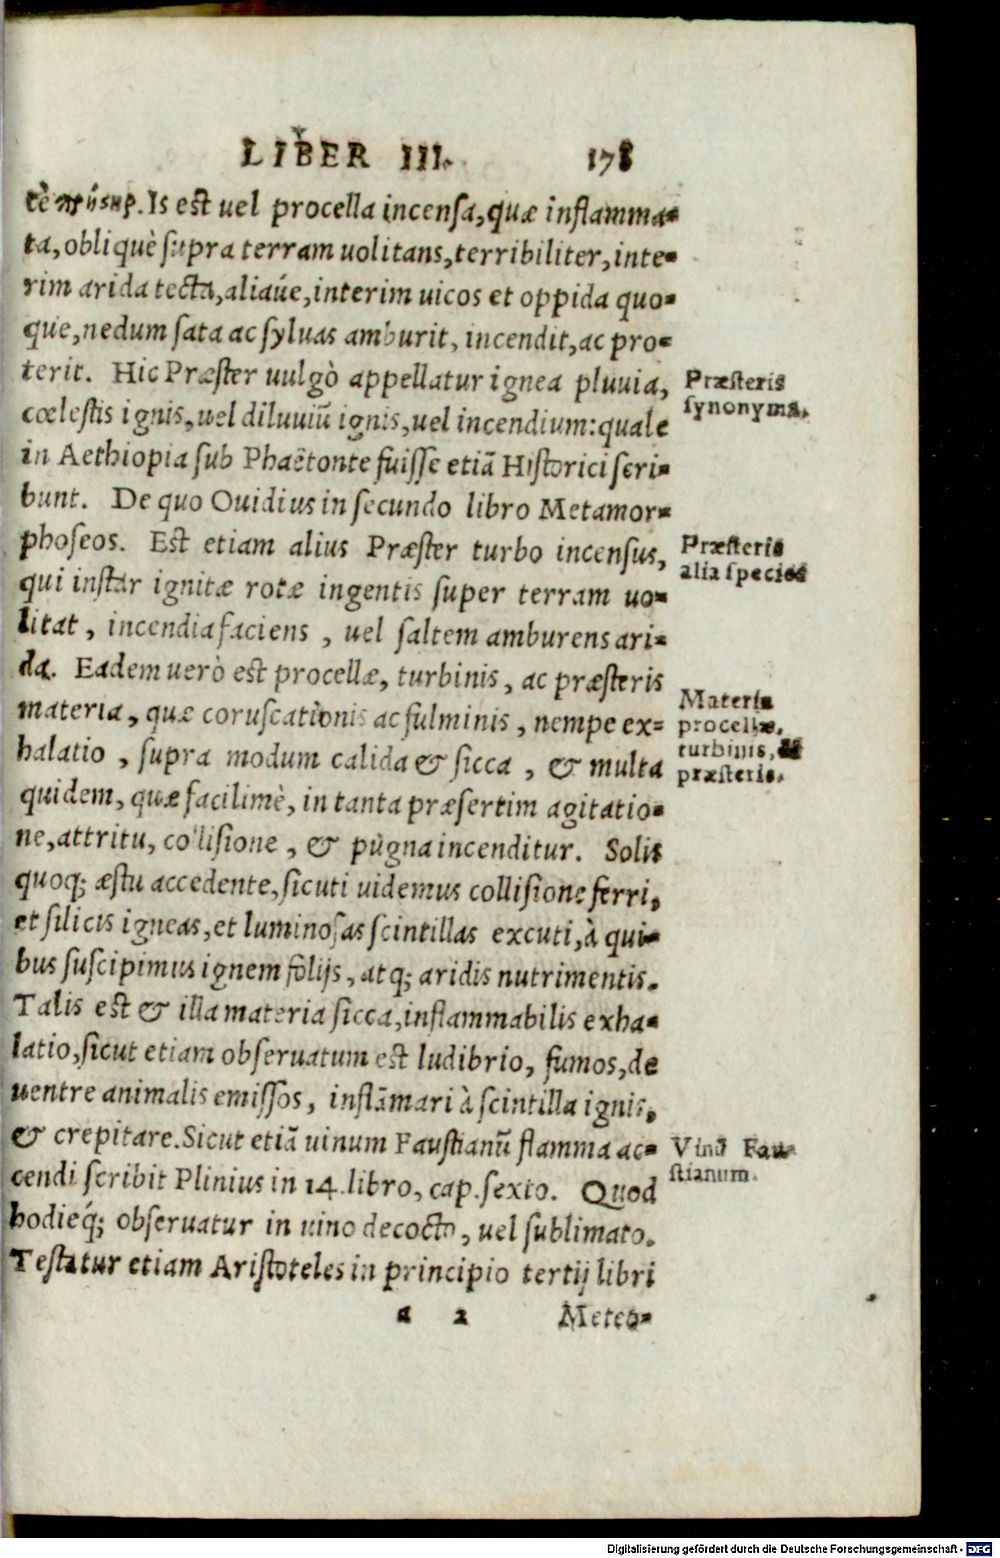 LIBER III. 178
tè πρήστηρ. Is est uel procella incensa, quæ inflamma-
ta, obliquè supra terram uolitans, terribiliter, inte-
rim arida tecta, aliaúe, interim uicos et oppida quo-
que, nedum sata ac syluas amburit, incendit, ac pro-
terit. Hic Præster uulgò appellatur ignea pluuia,
Præsteris
synonyma.
cœlestis ignis, uel diluuiũ ignis, uel incendium: quale
in Aethiopia sub Phaëtonte fuisse etiã Historici scri-
bunt. De quo Ouidius in secundo libro Metamor-
phoseos. Est etiam alius Præster turbo incensus,
Præsteris
alia species
qui instar ignitæ rotæ ingentis super terram uo-
litat, incendia faciens, uel saltem amburens ari-
da. Eadem uerò est procellæ, turbinis, ac præsteris
Materia
procellæ,
turbinis, &
præsteris.
materia, quæ coruscationis ac fulminis, nempe ex-
halatio, supra modum calida & sicca, & multa
quidem, quæ facilimè, in tanta præsertim agitatio-
ne, attritu, collisione, & pugna incenditur. Solis
quoq; æstu accedente, sicuti uidemus collisione ferri,
et silicis igneas, et luminosas scintillas excuti, à qui-
bus suscipimus ignem folijs, atq; aridis nutrimentis.
Talis est & illa materia sicca, inflammabilis exha-
latio, sicut etiam obseruatum est ludibrio, fumos, de
uentre animalis emissos, inflãmari à scintilla ignis,
& crepitare. Sicut etiã uinum Faustianũ flamma ac-
Vinũ Fau-
stianum.
cendi scribit Plinius in 14. libro, cap. sexto. Quod
hodieq́; obseruatur in uino decocto, uel sublimato.
Testatur etiam Aristoteles in principio tertij libri
a 2 Meteo-
Digitalisierung gefördert durch die Deutsche Forschungsgemeinschaft - DFG